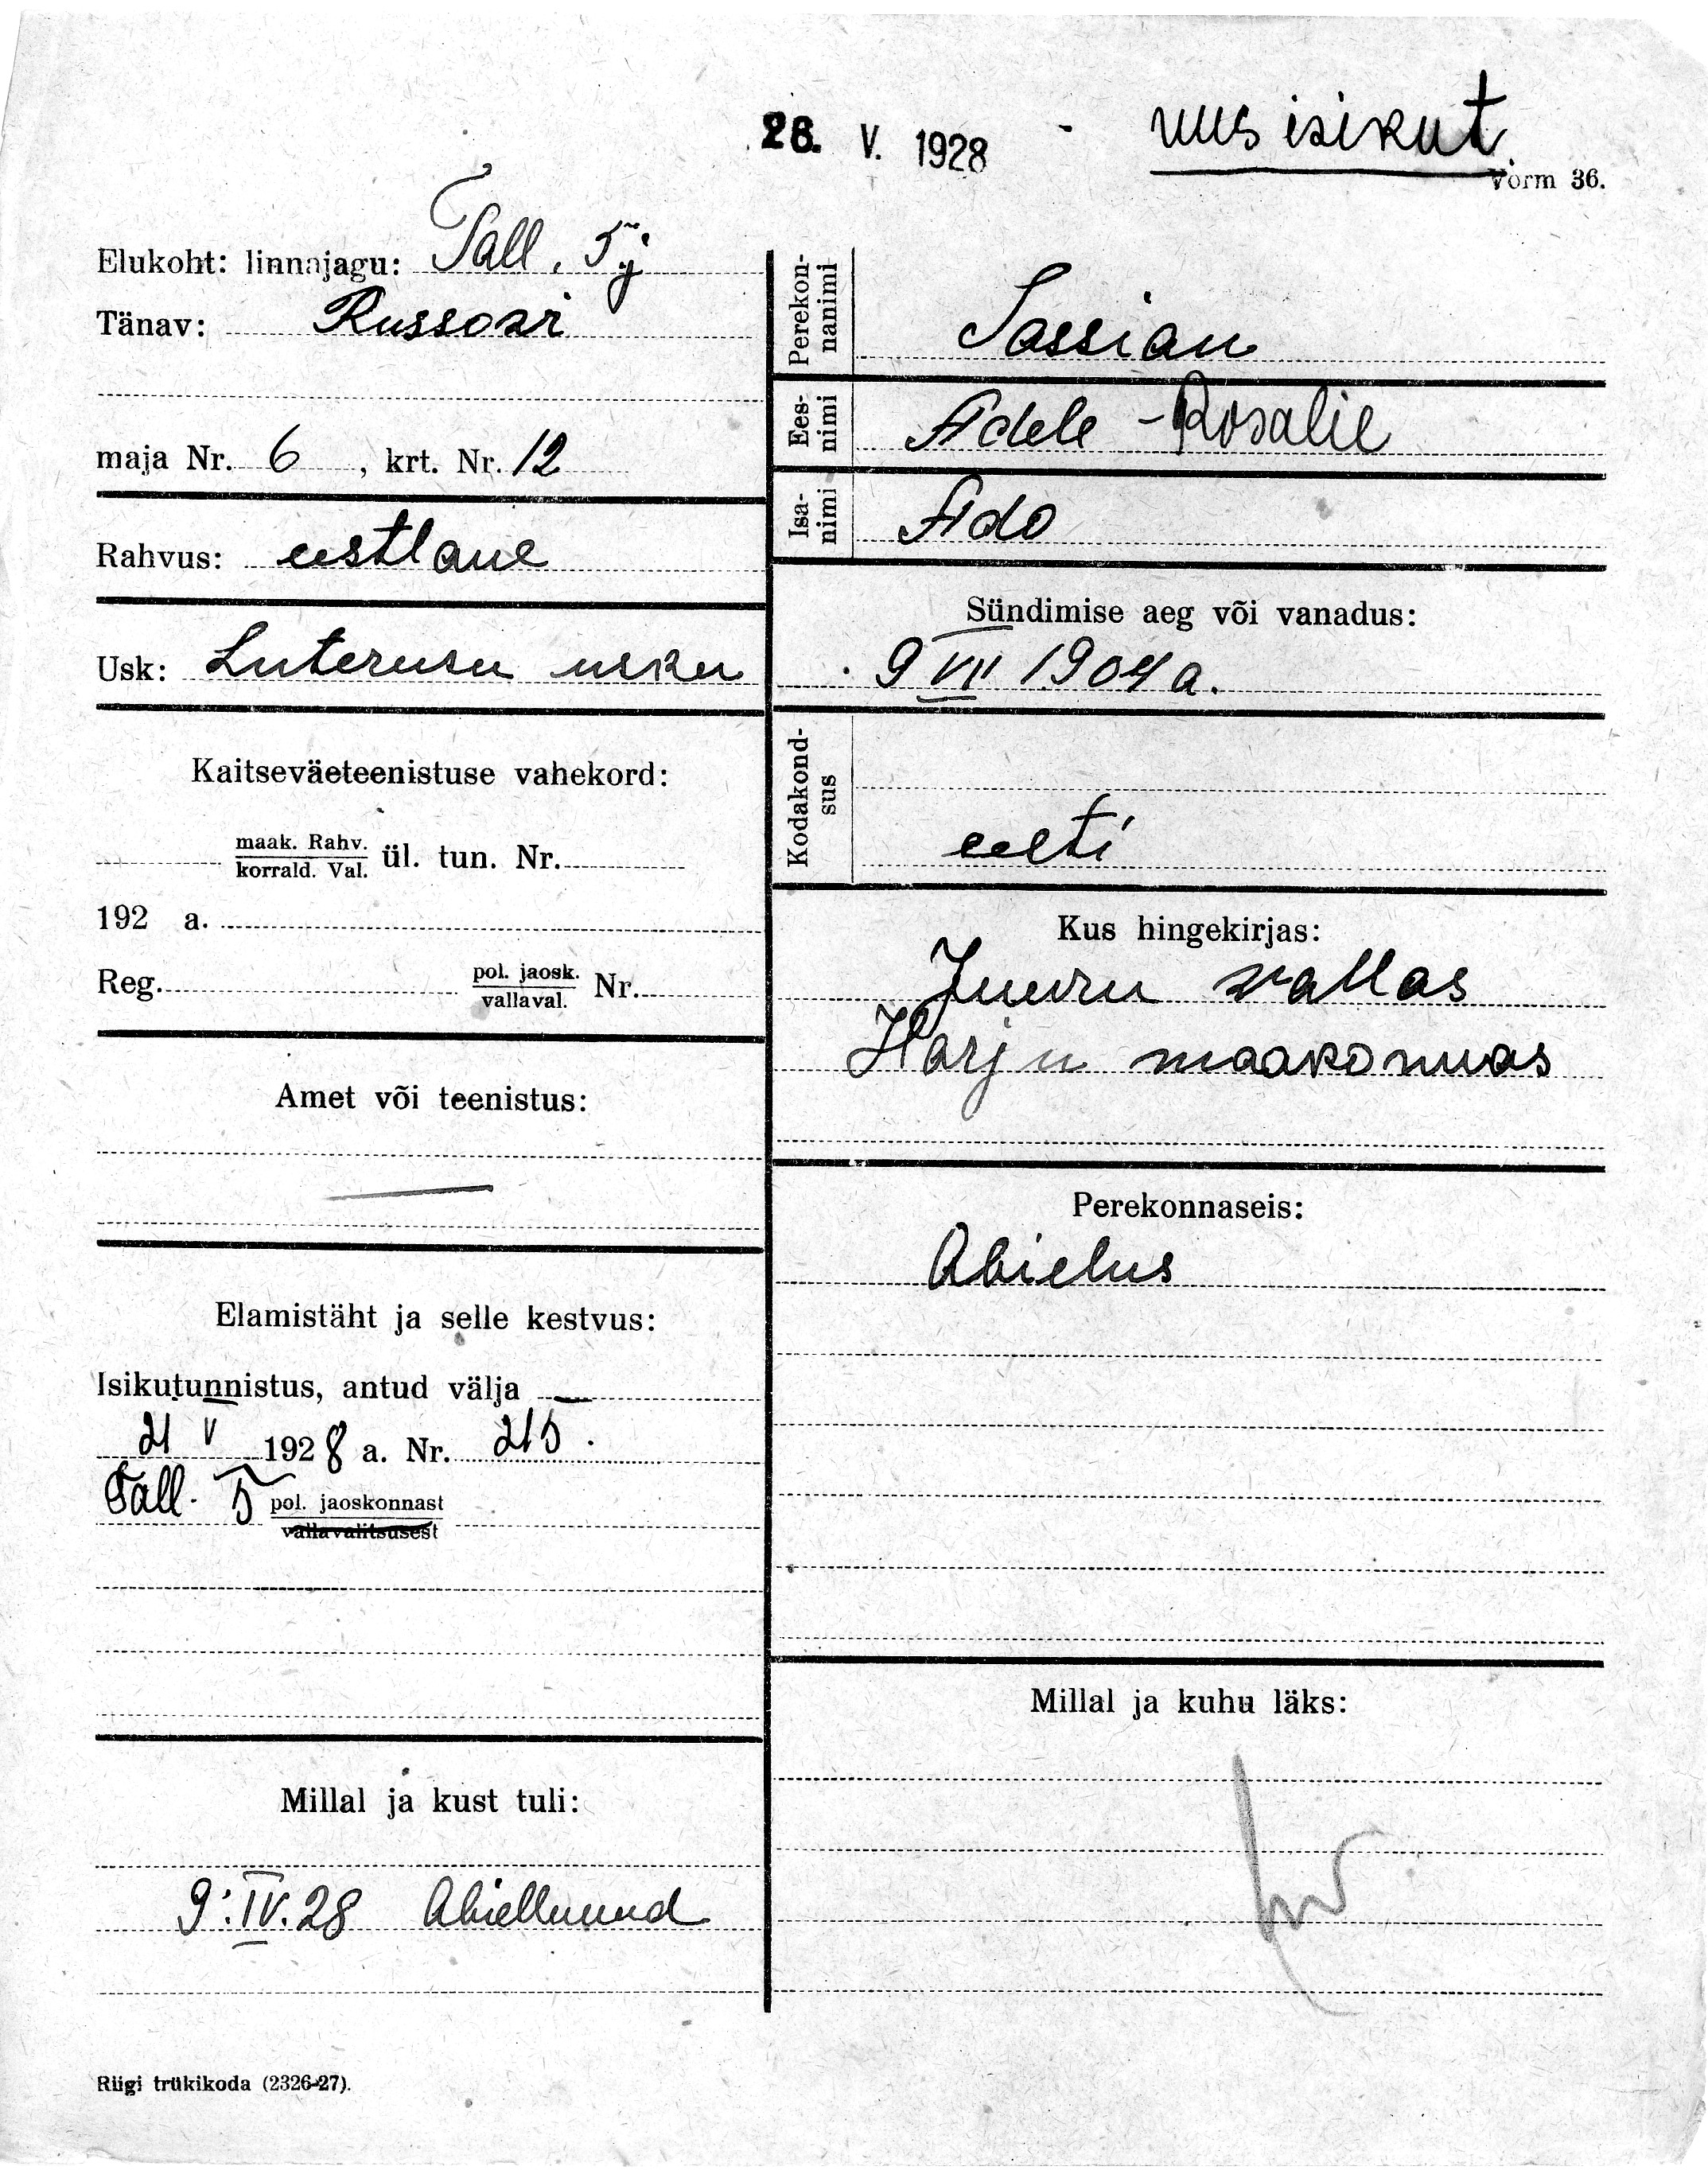 26. V. 1928 - uus isikut.
Vorm 36.
Elukoht: linnajagu: Tall. 5 j
Tänav: Russovi
maja Nr. 6 , krt. Nr. 12
Rahvus: eestlane
Usk: Luterusu usku
Kaitseväeteenistuse vahekord:
maak. Rahv.
korrald. Val. ül. tun. Nr.
192 a.
Reg. pol. jaosk.
vallaval. Nr.
Amet või teenistus:
—
Elamistäht ja selle kestvus:
Isikutunnistus, antud välja —
21 V 1928 a. Nr. 215.
Tall. 5 pol. jaoskonnast
vallavalitsusest
Millal ja kust tuli:
9. IV. 28 Abiellunud
Riigi trükikoda (2326-27).
Perekon-
nanimi Sassian
Ees-
nimi Adele - Rosalie
Isa-
nimi Ado
Sündimise aeg või vanadus:
9 VII 1904 a.
Kodakond-
sus eesti
Kus hingekirjas:
Juuru vallas
Harju maakonnas
Perekonnaseis:
Abielus
Millal ja kuhu läks: